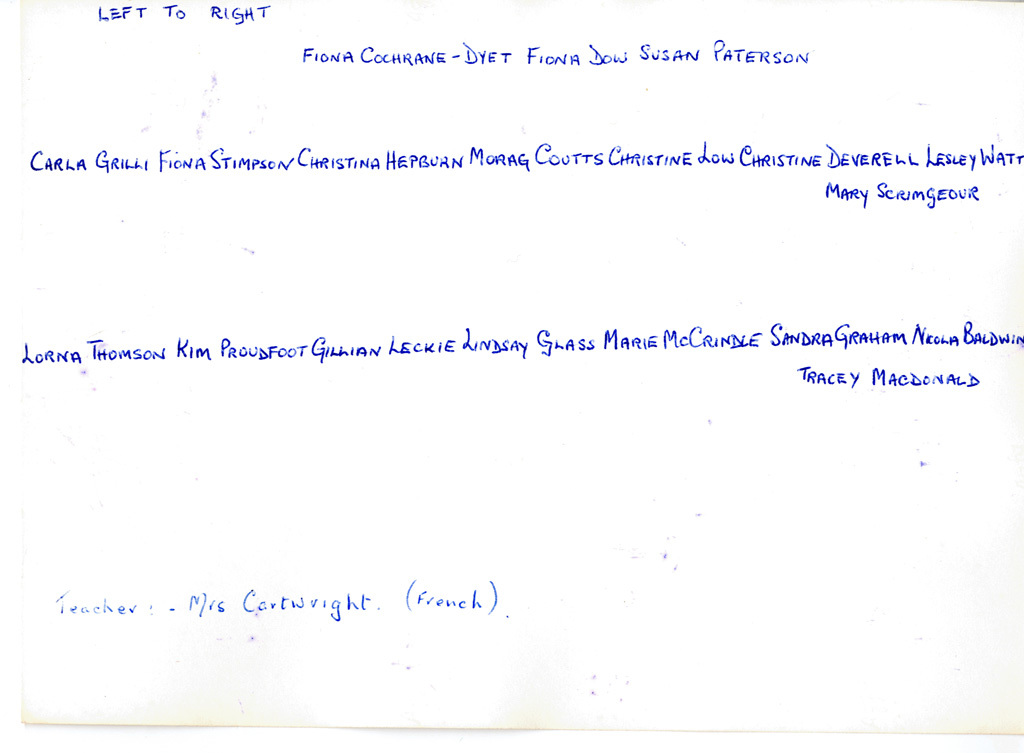 LEFT TO RIGHT
FIONA COCHRANE-DYET FIONA DOW SUSAN PATERSON
CARLA GRILLI FIONA STIMPSON CHRISTINA HEPBURN MORAG COUTTS CHRISTINE LOW CHRISTINE DEVERELL LESLEY WATT
MARY SCRIMGEOUR
LORNA THOMSON KIM PROUDFOOT GILLIAN LECKIE LINDSAY GLASS MARIE McCRINDLE SANDRA GRAHAM NICOLA BALDWIN
TRACEY MACDONALD
Teacher: - Mrs Cartwright. (French).